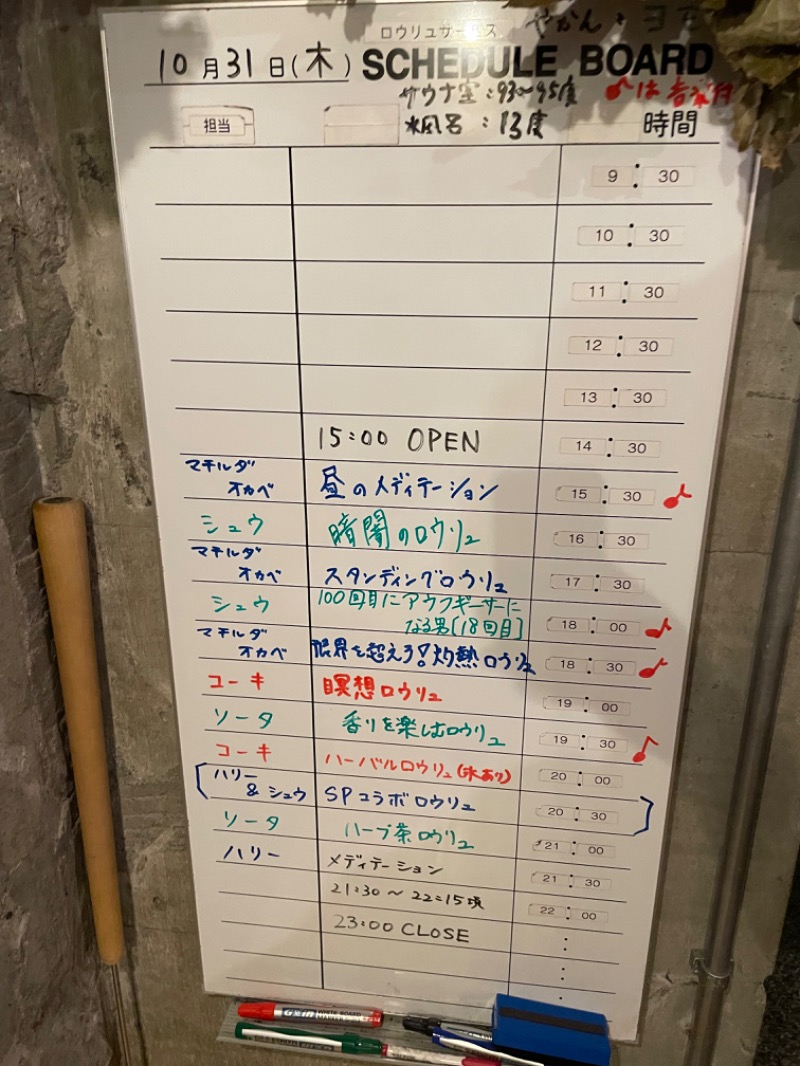 ロウリュサービス やかん
10月31日(木) SCHEDULE BOARD
サウナ室:93~95度 ♪は音楽付
担当 水風呂:13度 時間
9:30
10:30
11:30
12:30
13:30
15:00 OPEN 14:30
マチルダ
オカベ 昼のメディテーション 15:30 ♪
シュウ 暗闇のロウリュ 16:30
マチルダ
オカベ スタンディングロウリュ 17:30
シュウ 100回目にアウフギーサーに
なる男[18回目] 18:00 ♪
マチルダ
オカベ 限界を超えろ!灼熱ロウリュ 18:30 ♪
コーキ 瞑想ロウリュ 19:00
ソータ 香りを楽しむロウリュ 19:30 ♪
コーキ ハーバルロウリュ(氷あり) 20:00
ハリー
& シュウ SPコラボロウリュ 20:30
ソータ ハーブ茶ロウリュ 21:00
ハリー メディテーション 21:30
21:30~22:15頃 22:00
23:00 CLOSE :
:
:
WHITE BOARD